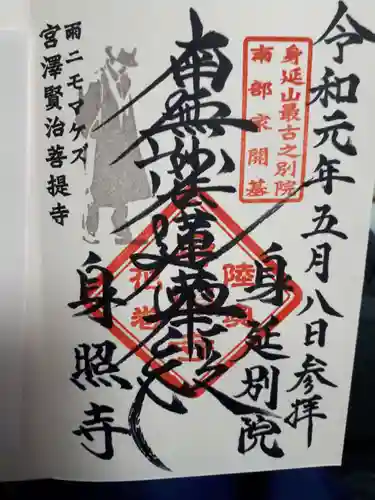 令和元年五月八日参拝
身延山最古之別院
南部家開基
身延別院
南無妙法蓮華経
陸奥
花巻
雨ニモマケズ
宮澤賢治菩提寺
身照寺